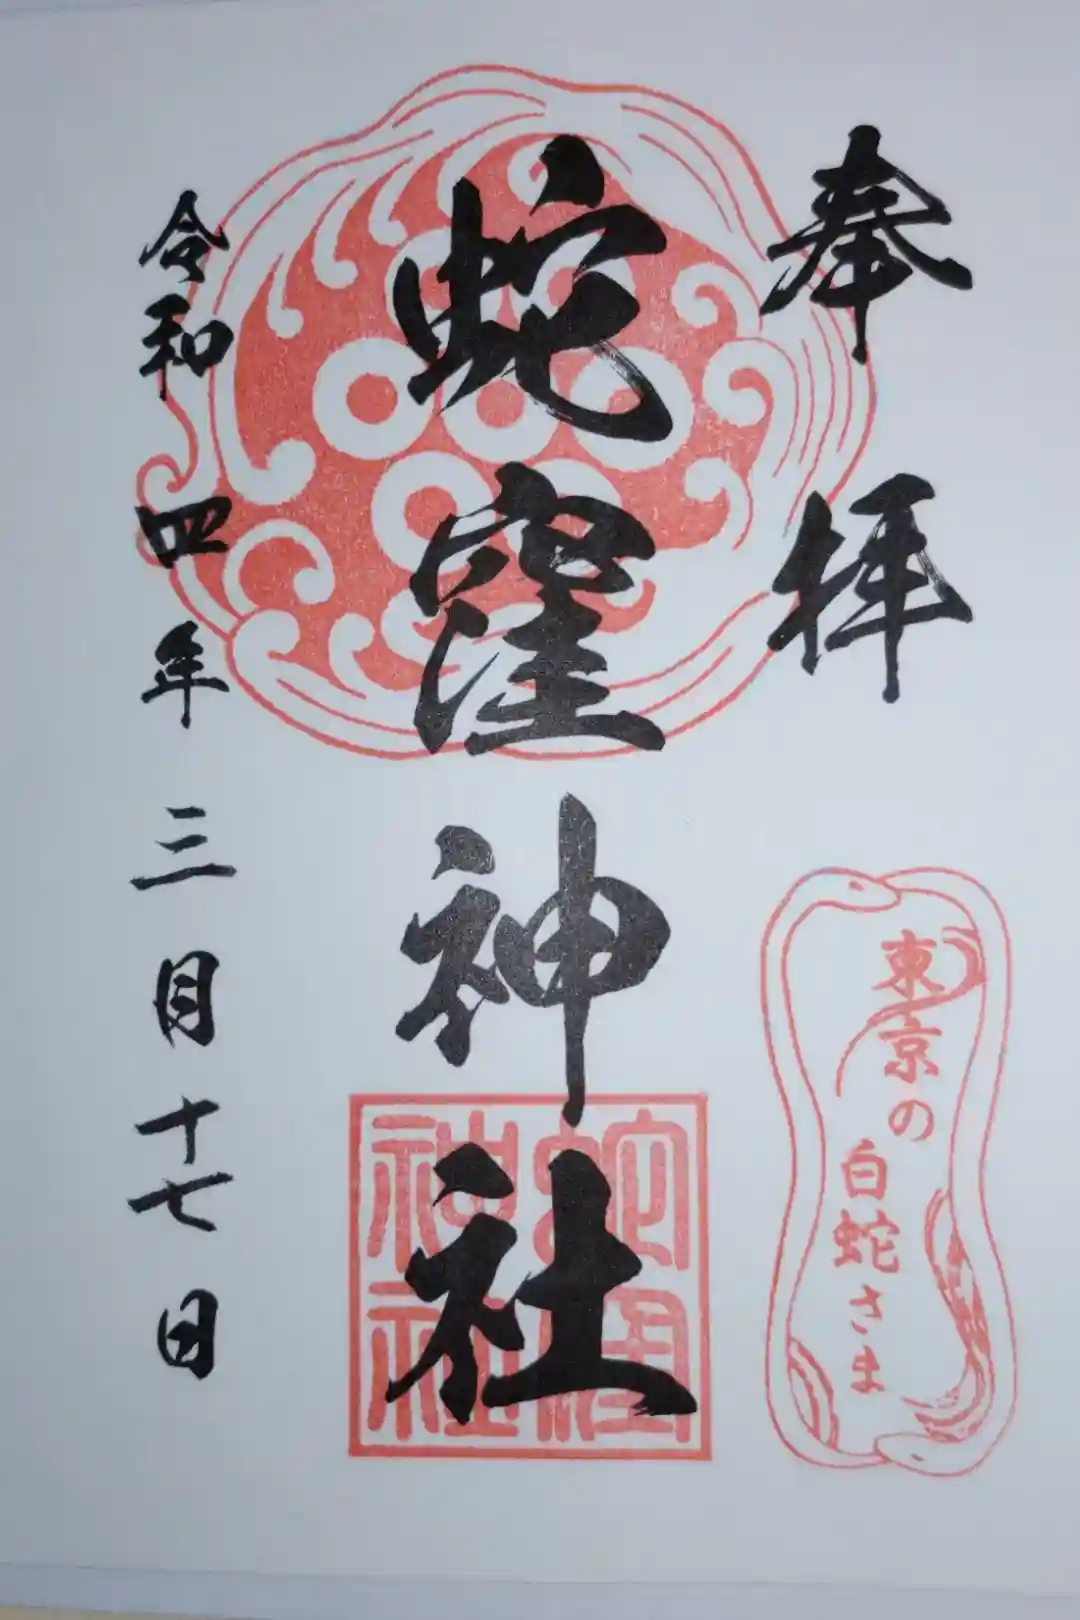 奉拝
蛇窪神社
令和四年三月十七日
東京の
白蛇さま
蛇窪
神社